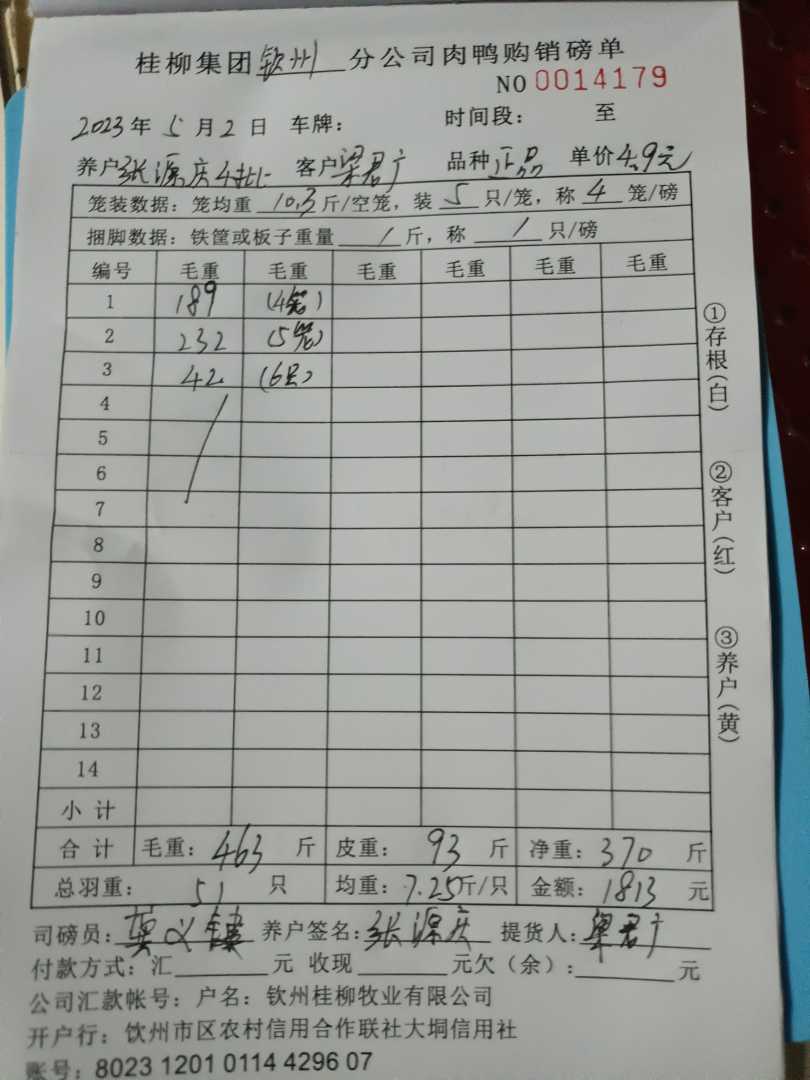 桂柳集团钦州分公司肉鸭购销磅单
NO 0014179
2023年5月2日 车牌: 时间段: 至
养户张源庆4批 客户梁君广 品种正品 单价4.9元
笼装数据: 笼均重10.3斤/空笼, 装5只/笼, 称4笼/磅
捆脚数据: 铁筐或板子重量/斤, 称/只/磅
编号 毛重 毛重 毛重 毛重 毛重 毛重
1 189 (4笼)
2 232 (5笼)
3 42 (6只)
4
5
6
7
8
9
10
11
12
13
14
小计
合计 毛重: 463斤 皮重: 93斤 净重: 370斤
总羽重: 51只 均重: 7.25斤/只 金额: 1813元
司磅员: 莫义 养户签名: 张源庆 提货人: 梁君广
付款方式: 汇 元 收现 元欠(余): 元
公司汇款帐号: 户名: 钦州桂柳牧业有限公司
开户行: 钦州市区农村信用合作联社大垌信用社
账号: 8023 1201 0114 4296 07
①存根(白)
②客户(红)
③养户(黄)